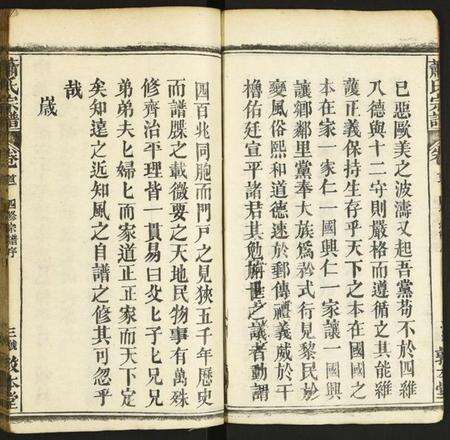 蕭氏宗譜
已惡歐美之波濤又起吾黨苟不於四維
八德與十二守則嚴格而遵循之其能維
護正義保持生存乎天下之本在國國之
本在家一家仁一國興仁一家讓一國興
讓鄉鄰里黨奉大族為矜式行見黎民於
變風俗熙和道德速於郵傳禮義威於干
櫓佑廷宣平諸君其勉旃世之議者動謂
四百兆同胞而門戶之見狹五千年歷史
而譜牒之載微要之天地民物事有萬殊
修齊治平理皆一貫易曰父七子七兄兄
弟弟夫七婦七而家道正正家而天下定
矣知遠之近知風之自譜之修其可忽乎
哉
歲
蕭氏宗譜
卷首
四修宗譜序
三
敦本堂